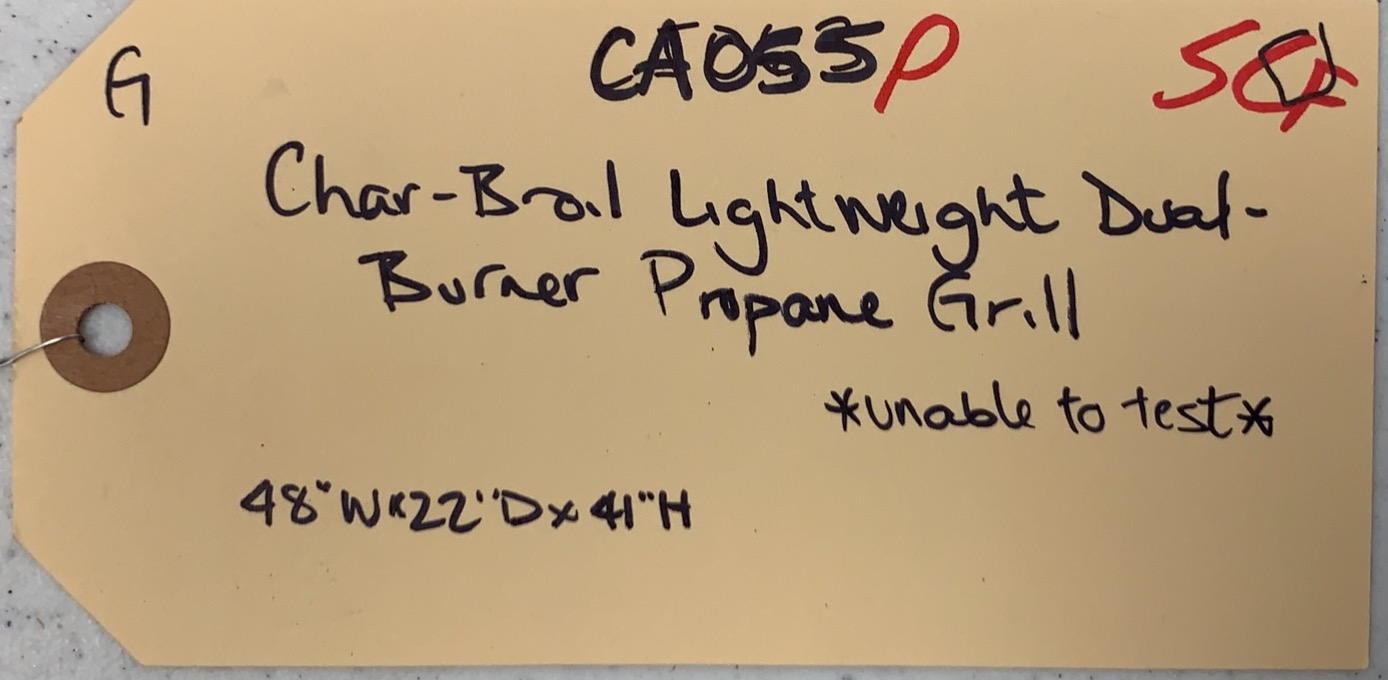 G
CA055P
Char-Broil Lightweight Dual-
Burner Propane Grill
*unable to test*
48"Wx22"Dx41"H